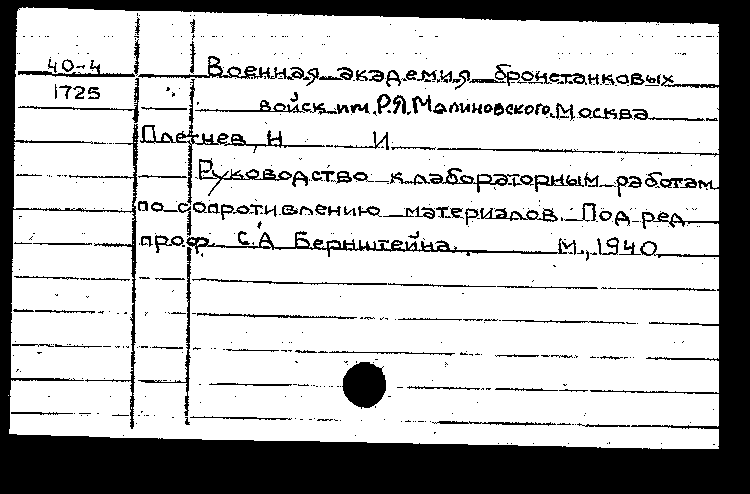 40-4 Военная академия бронетанковых
1725 войск им. Р.Я. Малиновского. Москва
Плетнев, Н И.
Руководство к лабораторным работам
по сопротивлению материалов. Под ред.
проф. С.А Бернштейна. М., 1940